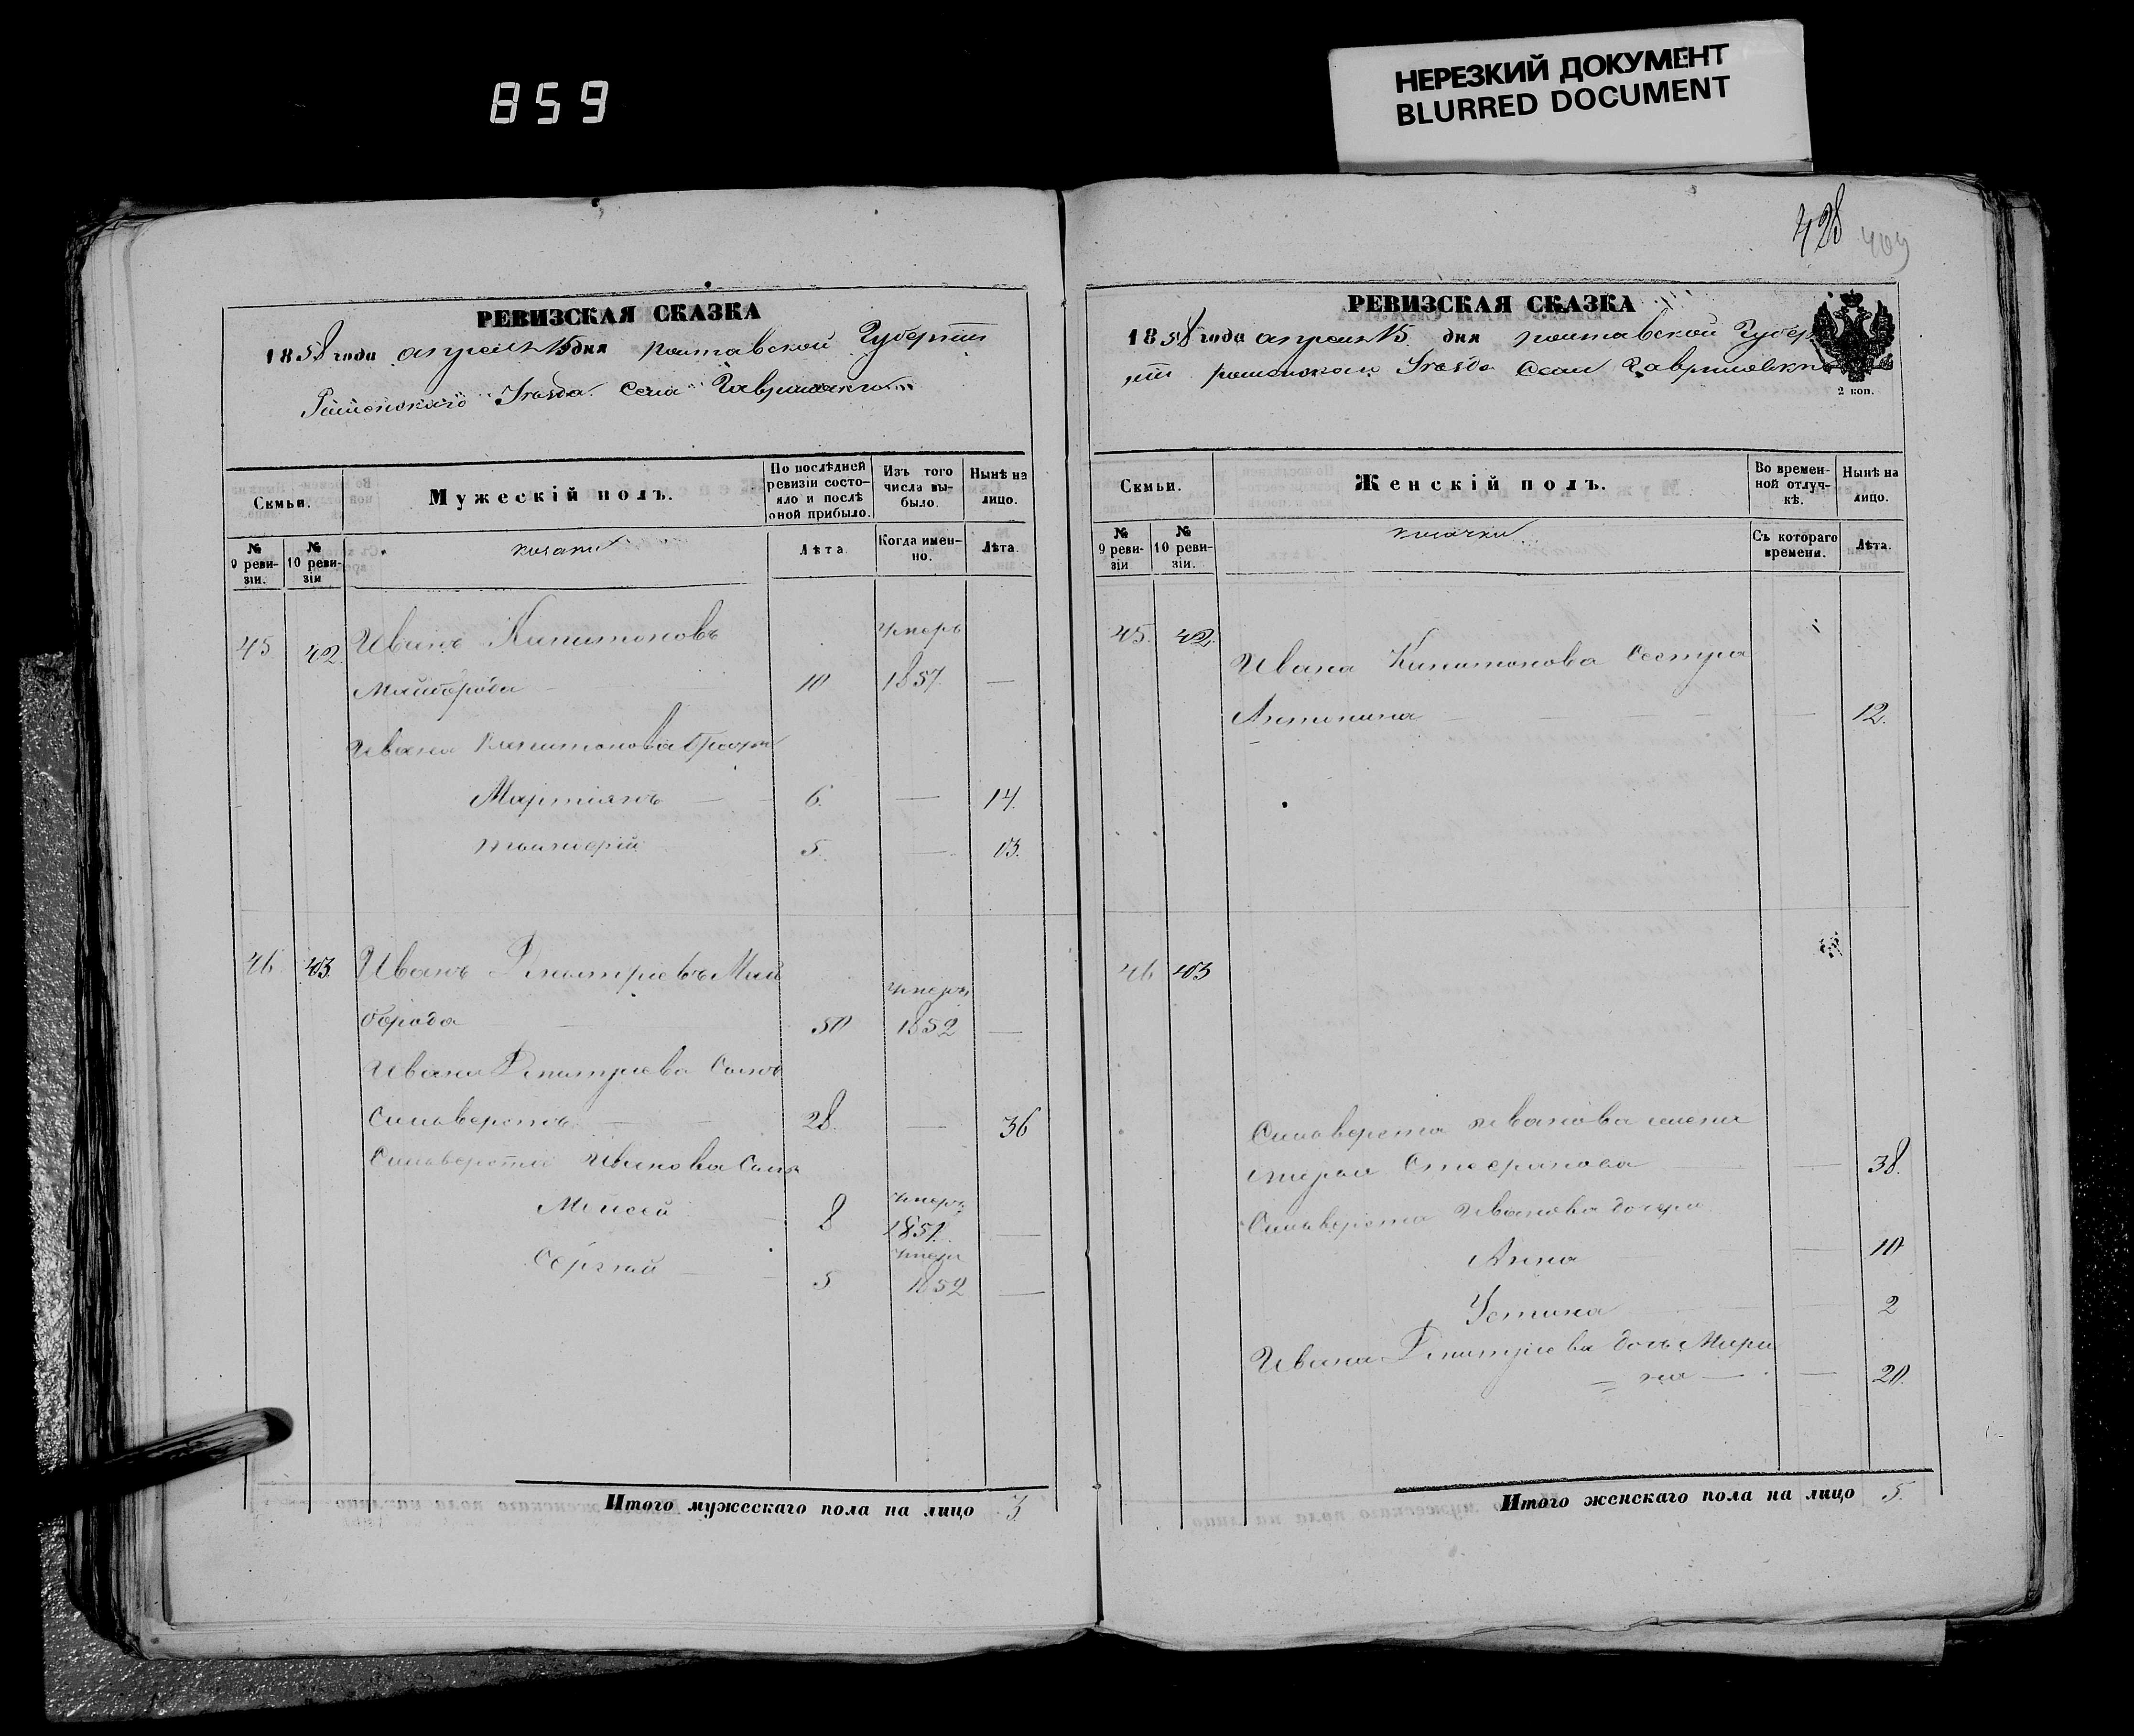 859
НЕРЕЗКИЙ ДОКУМЕНТ
BLURRED DOCUMENT
428
409
РЕВИЗСКАЯ СКАЗКА
1858 года апреля 15 дня Полтавской Губернии
Роменского Уезда Села Гавришовки
Семьи.
Мужескій полъ.
По послѣдней ревизіи состояло и послѣ оной прибыло.
Изъ того числа выбыло.
Нынѣ на лицо.
№ 9 ревизіи.
№ 10 ревизіи
казаки
Лѣта
Когда именно.
Лѣта.
45 42 Иванъ Капитоновъ умеръ
Майборода 10 1857 —
Ивана Капитонова братья
Мартіянъ — 6. — 14.
5. — 13.
46 43 Иванъ Дмитріевъ Май
умеръ
борода 50 1852 —
Ивана Дмитріева Сынъ
Сильверстъ — 28. — 36
Сильверста Иванова Сыны
Мойсей 8 умеръ 1851. —
Сергій — 5 умеръ 1852 —
Итого мужескаго пола на лицо 3.
РЕВИЗСКАЯ СКАЗКА
1858 года апреля 15 дня Полтавской Губер
ніи Роменского Уезда Села Гавришовки
2 коп.
Семьи.
Женскій полъ.
Во временной отлучкѣ.
Нынѣ на лицо.
№ 9 ревизіи
№ 10 ревизіи.
казачки
Съ котораго времени.
Лѣта.
45. 42.
Ивана Капитонова Сестра
Антонина — — 12.
46 43
Сильверста Иванова жена
Стефанова — 38.
Сильверста Иванова дочери
Анна — 10
Устина — 2
Ивана Дмитріева дочь Мари
на — — 20.
Итого женскаго пола на лицо 5.